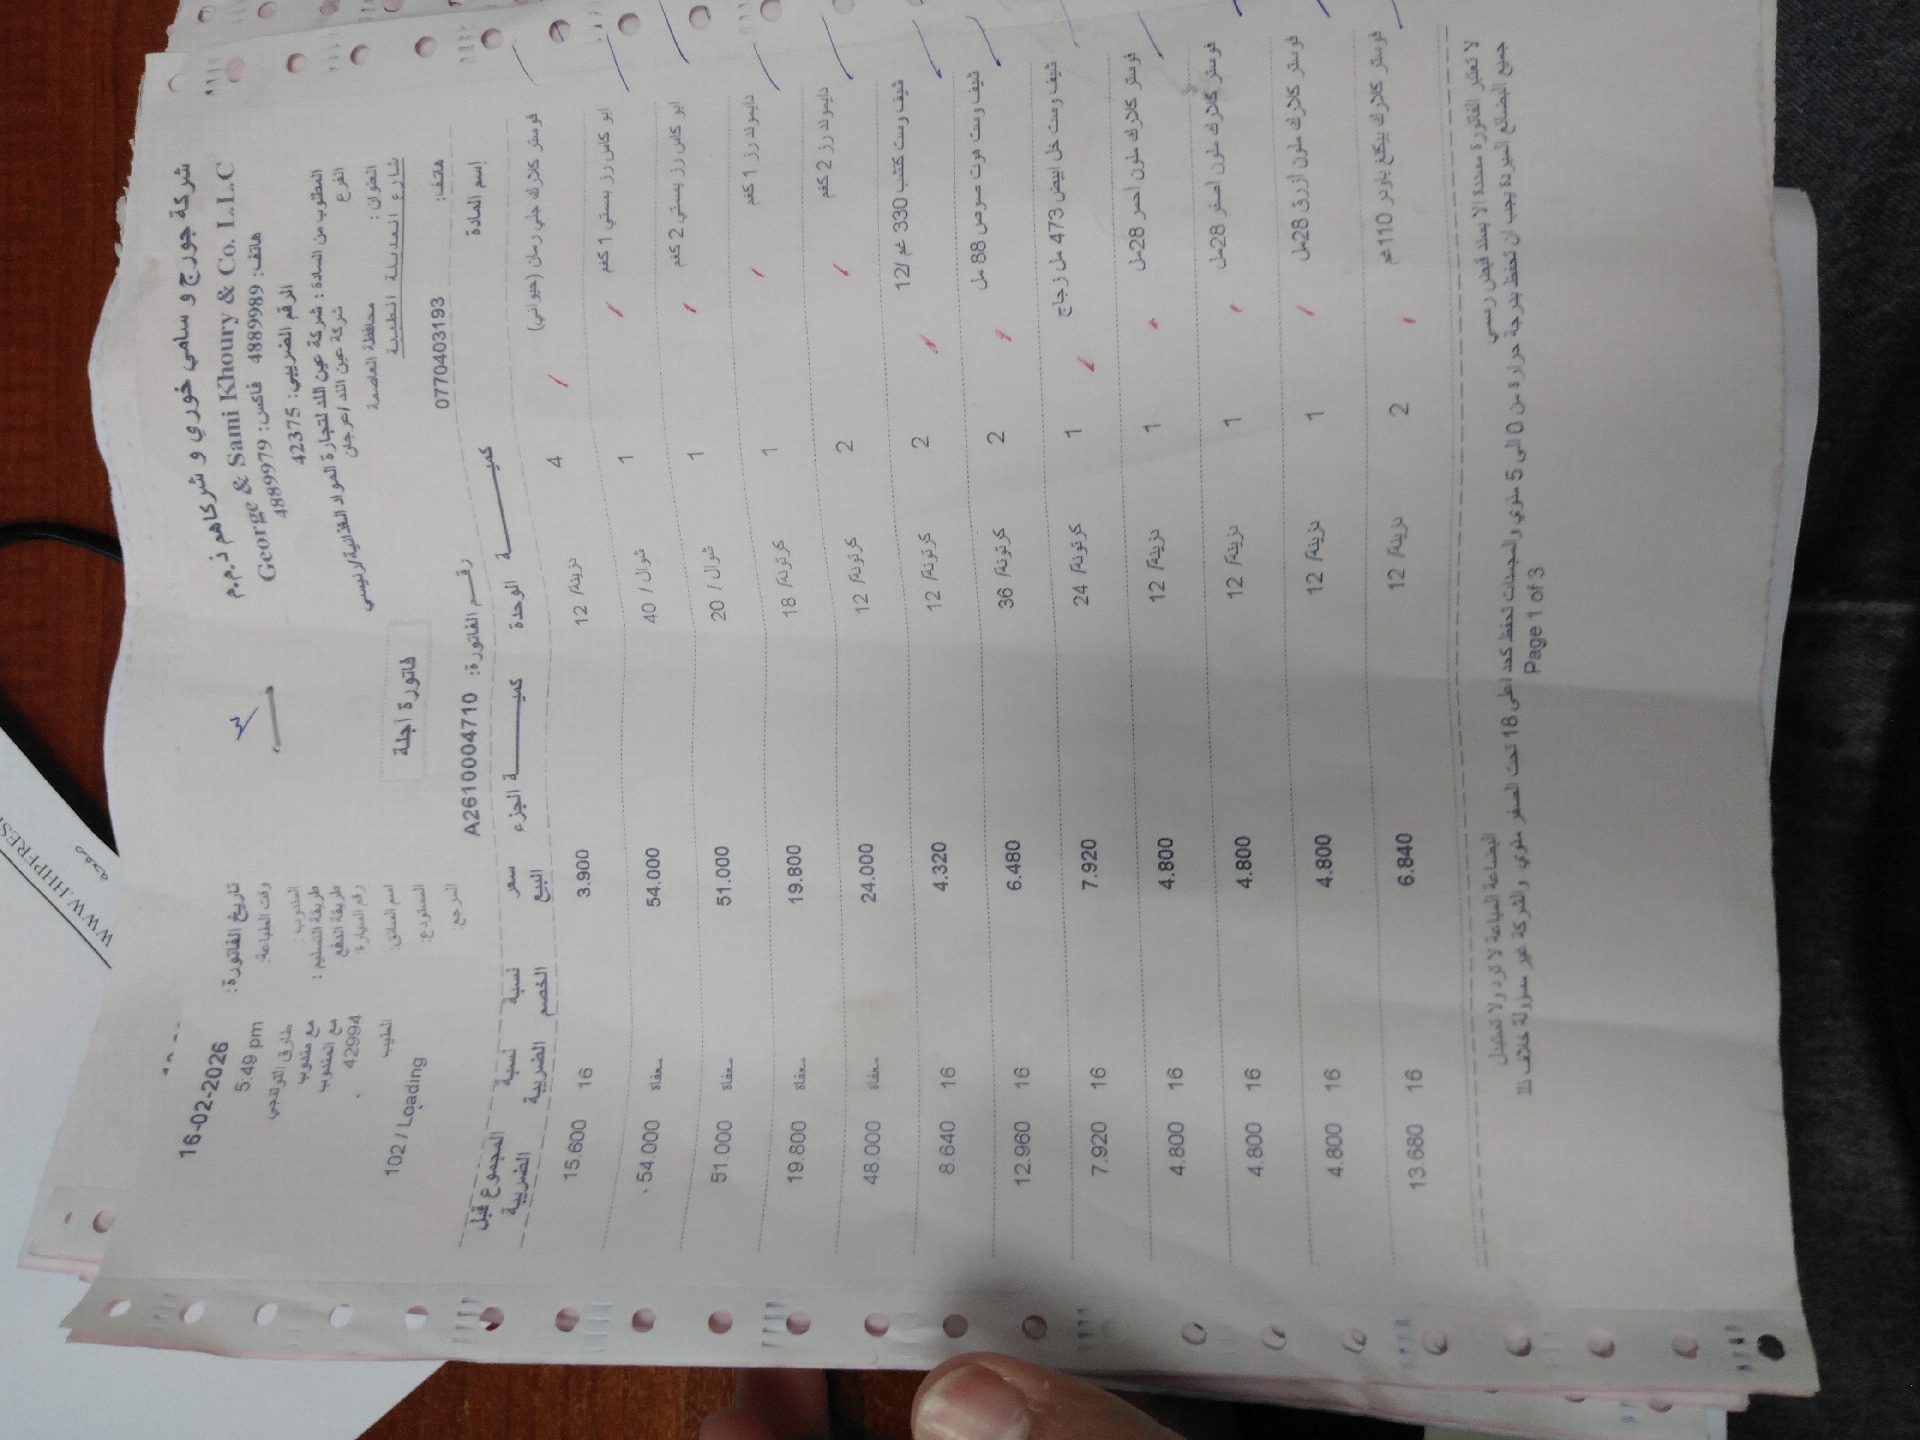 شركة جورج و سامي خوري و شركاهم ذ.م.م
George & Sami Khoury & Co. L.L.C
هاتف: 4889989 فاكس: 4889979
الرقم الضريبي: 42375
المطلوب من السادة : شركة عين اللد لتجارة المواد الغذائية/رئيسي
الفرع شركة عين اللد /عرجان
العنوان : محافظة العاصمة
شارع المدينة الطبية
هاتف: 0770403193
16-02-2026 تاريخ الفاتورة:
5:49 pm وقت الطباعة:
المندوب: طارق
طريقة التسليم : مع مندوب
طريقة الدفع مع المندوب
رقم السيارة: 42994
اسم السائق: الطيب
المستودع: 102 / Loading
المرجع:
فاتورة آجلة
رقم الفاتورة: A2610004710
إسم المادة كميـــة الوحدة كميـــة الجزء سعر البيع نسبة الخصم نسبة الضريبة المجموع قبل الضريبة
فوستر كلارك جلي رمان (حيواني) 4 دزينة/ 12 3.900 16 15.600
ابو كاس رز بسمتي 1 كغم 1 شوال / 40 54.000 معفاة 54.000
ابو كاس رز بسمتي 2 كغم 1 شوال / 20 51.000 معفاة 51.000
دايموند رز 1 كغم 1 كرتونة/ 18 19.800 معفاة 19.800
دايموند رز 2 كغم 2 كرتونة/ 12 24.000 معفاة 48.000
شيف وست كتشب 330 غم /12 2 كرتونة/ 12 4.320 16 8.640
شيف وست هوت صوص 88 مل 2 كرتونة/ 36 6.480 16 12.960
شيف وست خل ابيض 473 مل زجاج 1 كرتونة/ 24 7.920 16 7.920
فوستر كلارك ملون احمر 28مل 1 دزينة/ 12 4.800 16 4.800
فوستر كلارك ملون اصفر 28مل 1 دزينة/ 12 4.800 16 4.800
فوستر كلارك ملون ازرق 28مل 1 دزينة/ 12 4.800 16 4.800
فوستر كلارك بيكنغ باودر 110غم 2 دزينة/ 12 6.840 16 13.680
لا تعتبر الفاتورة مسددة الا بسند قبض رسمي
البضاعة المباعة لا ترد ولا تستبدل
جميع البضائع المبردة يجب ان تحفظ بدرجة حرارة من 0 الى 5 مئوي والمجمدات تحفظ كحد اعلى 18 تحت الصفر مئوي والشركة غير مسؤولة خلاف ذلك
Page 1 of 3